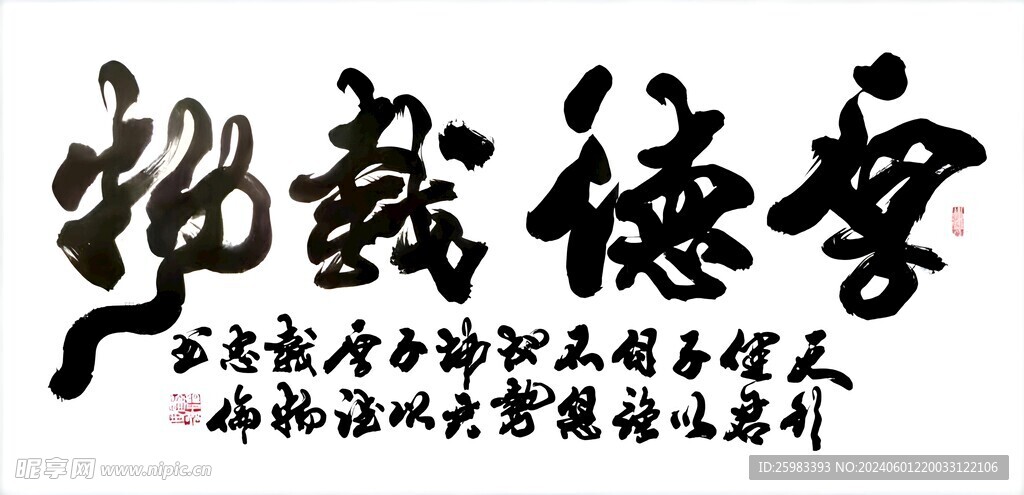 厚德載物
天行
健君
子以
自強
不息
地勢
坤君
子以
厚德
載物
忠倫
昵享网 www.nipic.cn
ID:25983393 NO:20240601220033122106